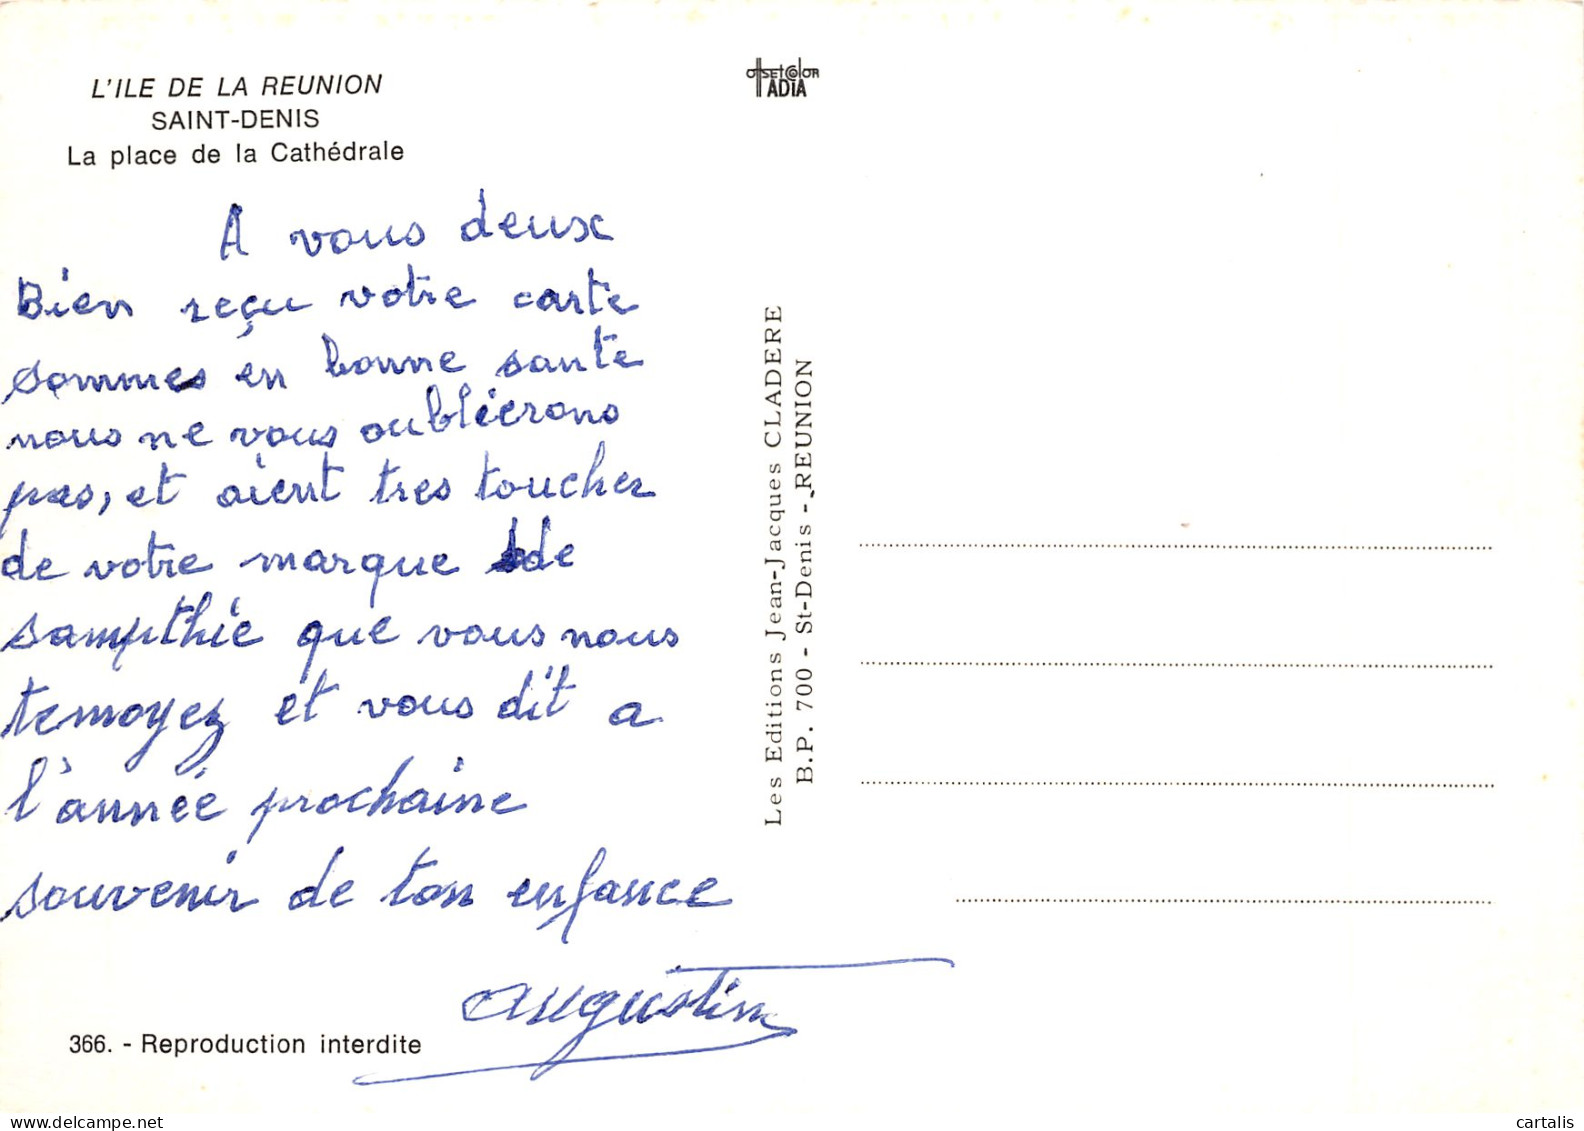 L'ILE DE LA REUNION
SAINT-DENIS
La place de la Cathédrale
offsetcolor
ADIA
A vous deux
Bien reçu votre carte
sommes én bonne sante
nous ne vous oublierons
pas, et aient tres toucher
de votre marque de
sampthie que vous nous
temoyez et vous dit a
l'année prochaine
souvenir de ton enfance
Augustin
366. - Reproduction interdite
Les Editions Jean-Jacques CLADERE
B.P. 700 - St-Denis - REUNION
delcampe.net
cartalis